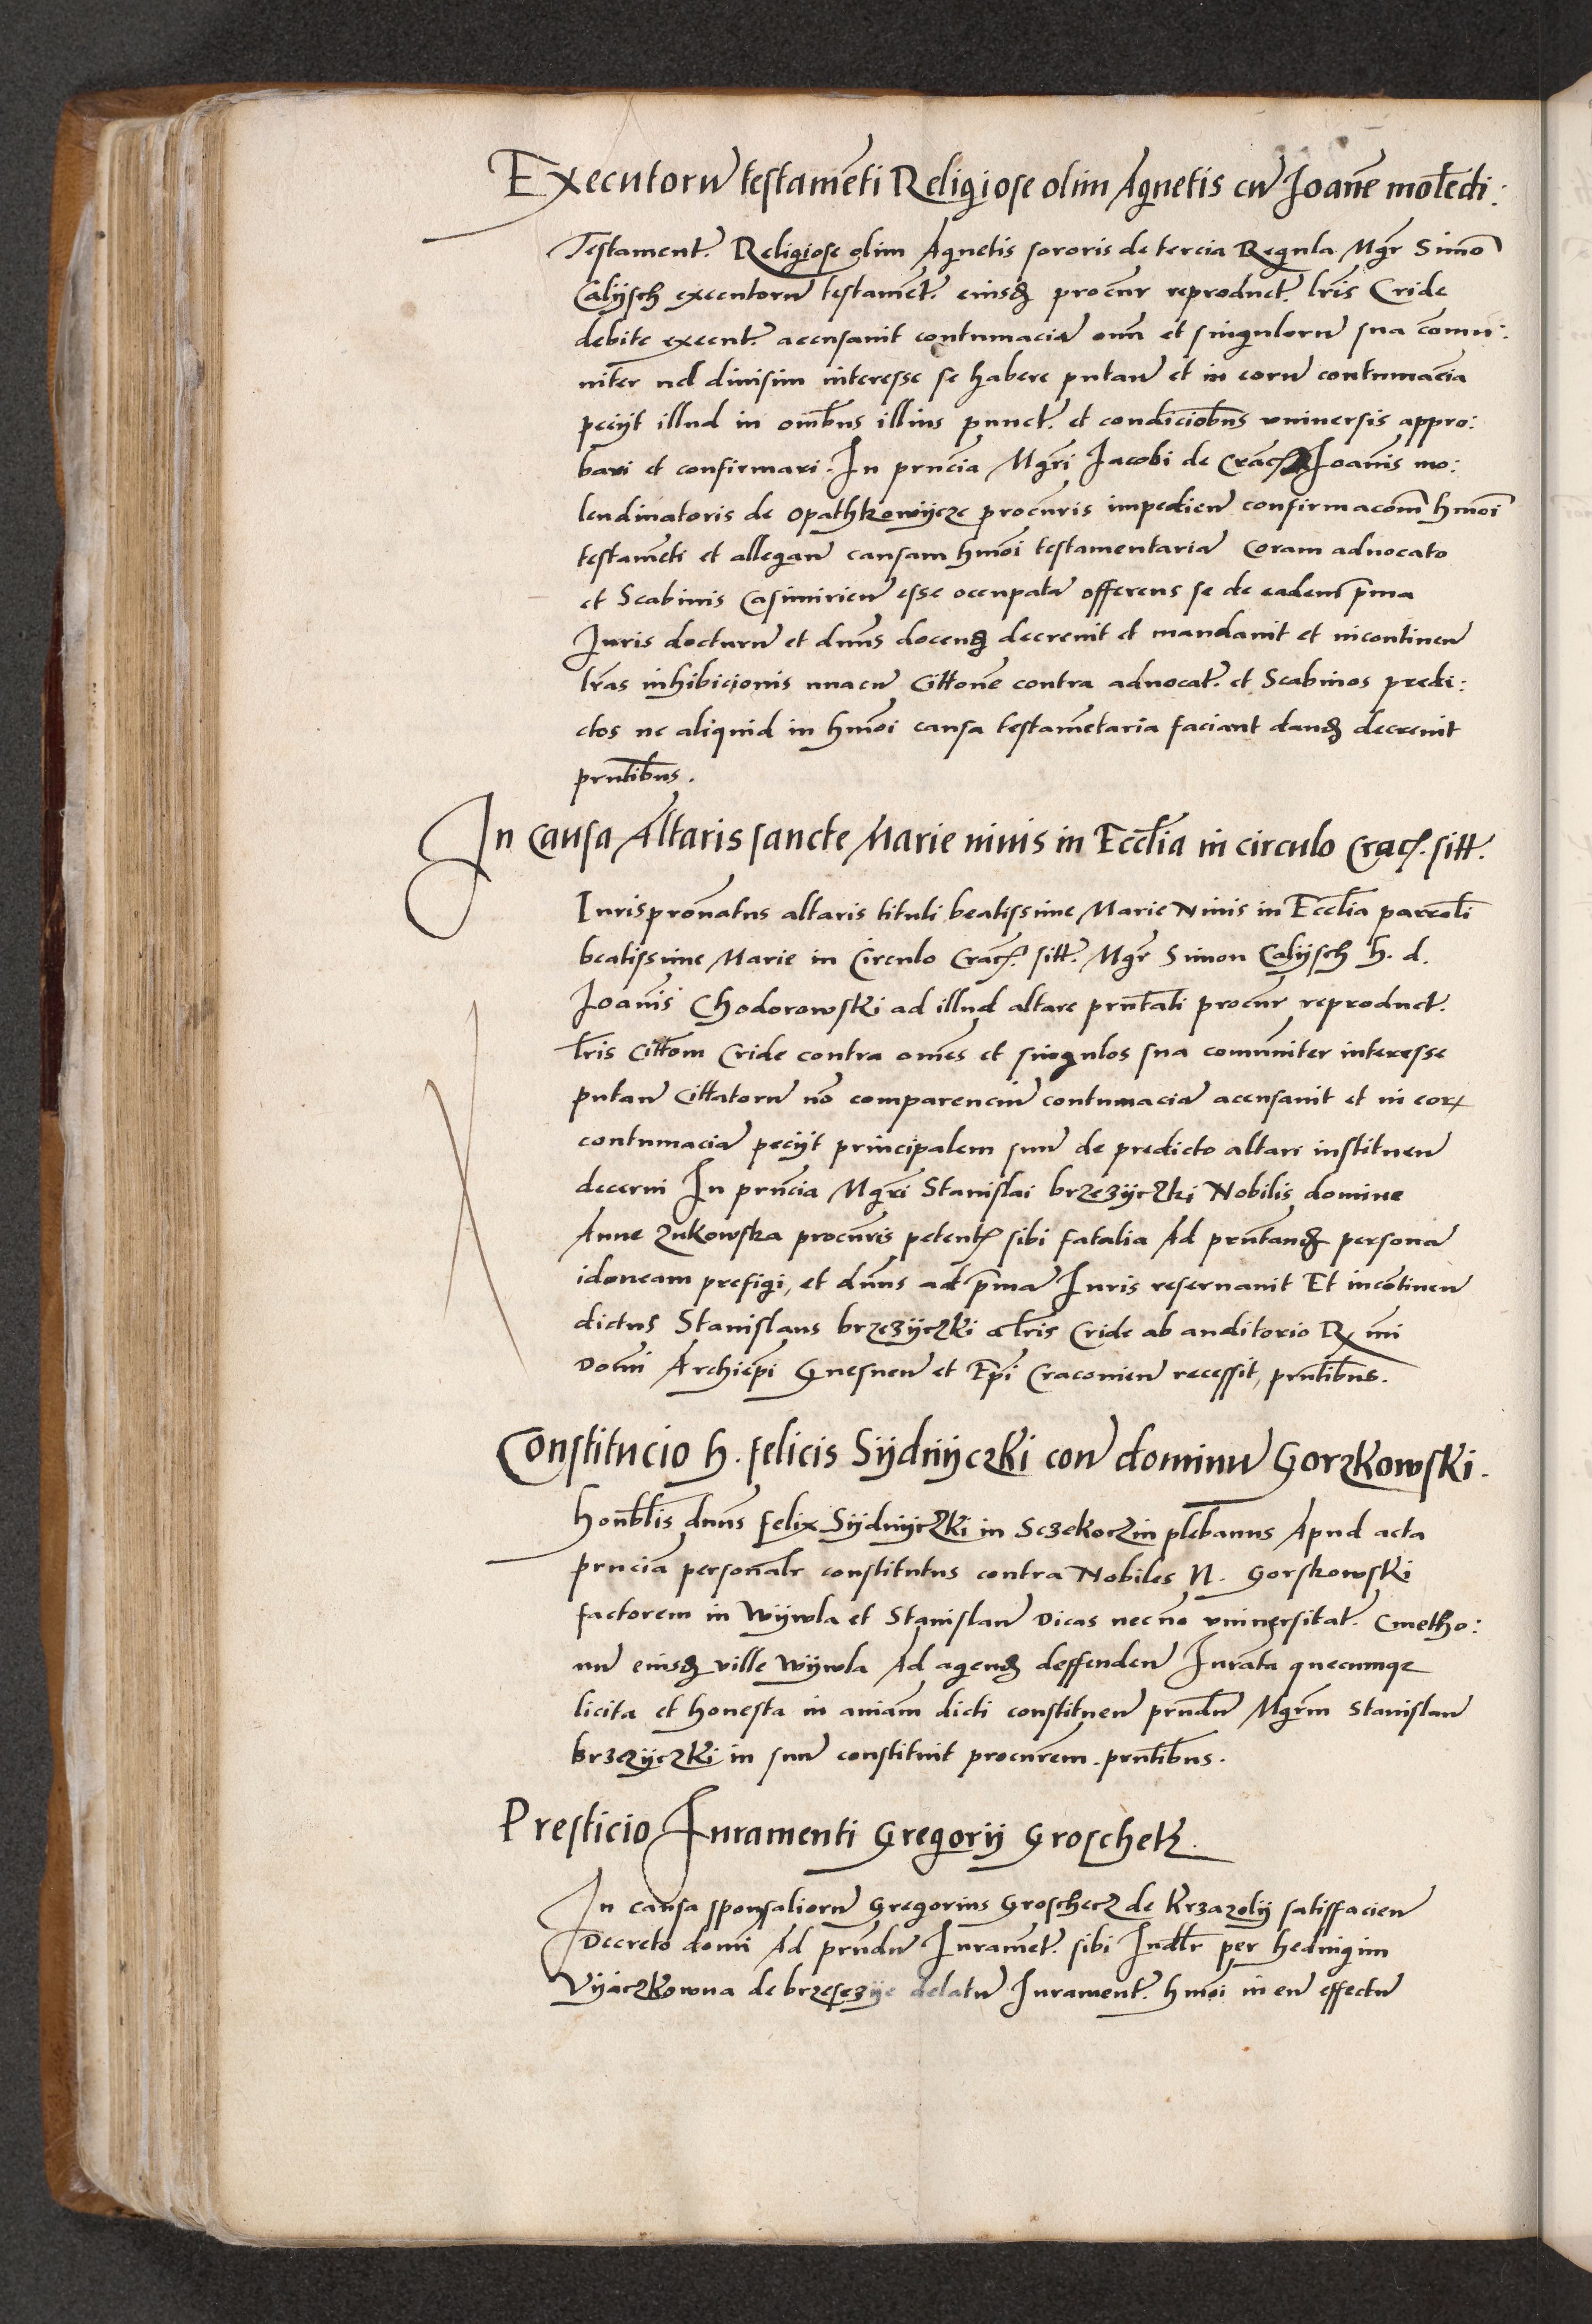 Executorũ testamẽti Religiose olim Agnetis cũ Joãne molẽdi:
Testament. Religiose olim Agnetis sororis de tercia Regula Mgr̃ Simõ
Calijsch executorũ testamẽt. eiusd procur reproduct. lr̃is Cride
debite execut. accusauit contumaciã om̃ et singulorũ sua com̃u:
niter uel diuisim interesse se habere putañ et in eorũ contumacia
pecijt illud in om̃ibus illius punct. et condiciõbus vniuersis appro:
bari et confirmari. In pr̃ncia Mgr̃i Jacobi de Crac̃ Joañis mo:
lendinatoris de opathkowijcze procur̃is impedieñ confirmacõm hm̃oi
testamẽti et allegañ causam hm̃oi testamentariã coram aduocato
et Scabinis Casimirieñ esse occupatã offerens se de eadem p̃ma
Juris docturũ et dñus docend decreuit et mandauit et incontineñ
lr̃as inhibicionis unacũ Citton̄e contra aduocat. et Scabinos predi:
ctos ne aliquid in hm̃oi causa testamẽtaria faciant dand decreuit
pr̃ntibus.
In Causa Altaris sancte Marie niuis in Eccl̃ia in circulo Crac. sitt.
Jurispron̄atus altaris tituli beatissime Marie Niuis in Eccl̃ia parrol̃i
beatissime Marie in Circulo Crac̃. sitt. Mgr̃ Simon Calijsch h. d.
Joañis Chodorowski ad illud altare pr̃ntati procur reproduct.
lr̃is Cittom̃ Cride contra om̃es et singulos sua com̃uniter interesse
putañ Cittatorũ nõ comparenciũ contumaciã accusauit et in eor
contumaciã pecijt principalem suũ de predicto altari instituen̄
decerni In pr̃ncia Mgr̃i Stanislai brzezijczki Nobilis domine
Anne Zukowska procur̃is petent sibi fatalia Ad pr̃ntand personã
idoneam prefigi, et dñus ad p̃mã Juris reseruauit Et incontineñ
dictus Stanislaus brzezijczki a lr̃is Cride ab auditorio R mi
Domi Archiep̃i Gnesneñ et Ep̃i Cracouieñ recessit, pr̃ntibus.
Constitucio h. felicis Sijdnijczki con̄ dominũ Gorzkowski.
Hon̄blis dñus felix Sijdnijczki in Sczekoczin pleban̄us Apud acta
prnciã personal̃r constitutus contra Nobiles N. Gorskowski
factorem in Wijwla et Stanislaũ Dicas necnõ vniuersitat. Cmetho:
nũ eiusd ville Wijwla Ad agend deffendeñ Jurata quecumqz
licita et honesta in aniam̃ dicti constitueñ pr̃ndũ Mgr̃m Stanislaũ
brzezijczki in suũ constituit procur̃em. pr̃ntibus.
Presticio Juramenti Gregorij Groschek.
In causa sponsaliorũ Gregorius Groschecz de Krzazolij satisfacieñ
Decreto domi Ad pr̃ndũ Juramẽt. sibi Judl̃r per heduigim
Vijaczkowna de brzesczije delatũ Jurament. hm̃oi in eũ effectũ